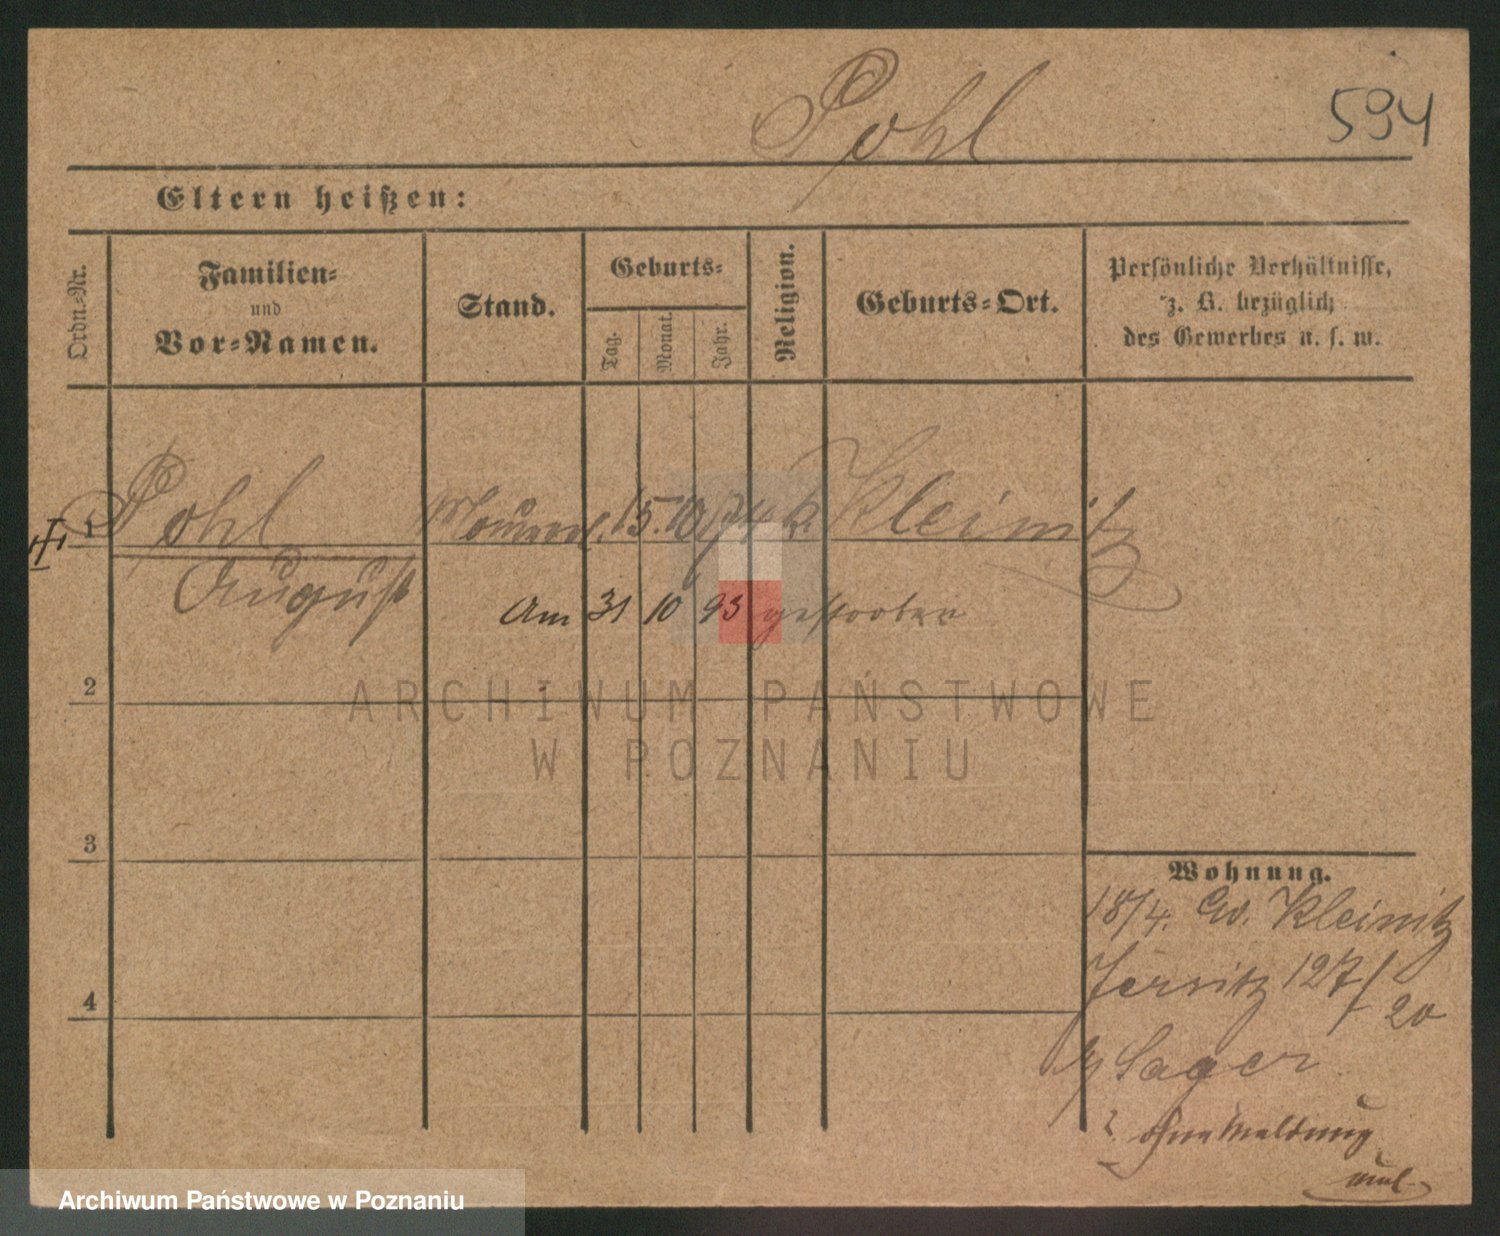 Pohl
594
Eltern heißen:
Ordn.-Nr.
Familien-
und
Vor-Namen.
Stand.
Geburts-
Tag.
Monat.
Jahr.
Religion.
Geburts-Ort.
Persönliche Verhältnisse,
z. B. bezüglich
des Gewerbes u. s. w.
1 Pohl 15. 10 74 k. Kleinitz
August
Am 31 10 93 gestorben
2
3
4
Wohnung.
18/4. Kleinitz
Jersitz 127/20
Sager
ohne Meldung
ARCHIWUM PAŃSTWOWE
W POZNANIU
Archiwum Państwowe w Poznaniu